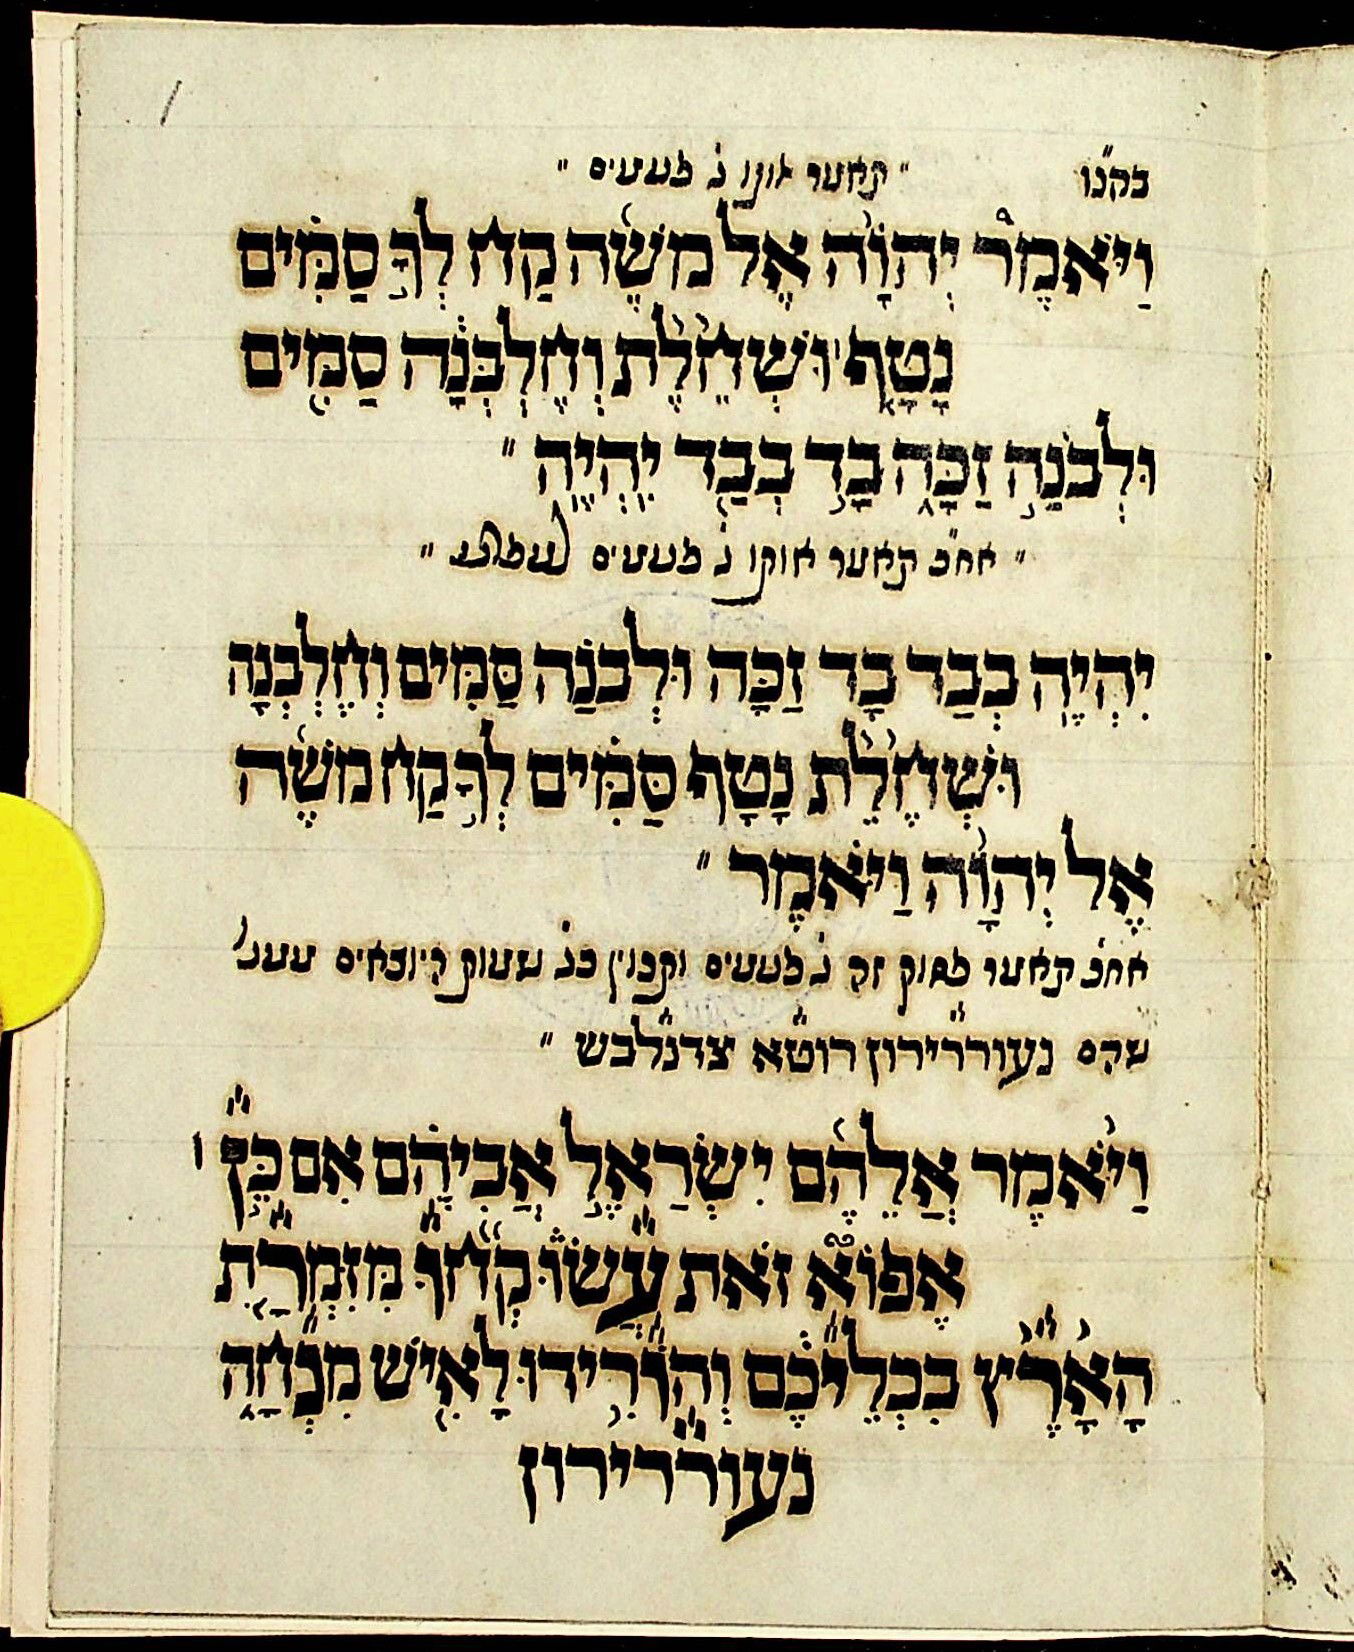 בקנו״ ״ תאמר אותו ג׳ פעמים ״
וַיֹּאמֶר יְהוָֹה אֶל מֹשֶׁה קַח לְךָ סַמִּים
נָטָף וּשְׁחֵלֶת וְחֶלְבְּנָה סַמִּים
וּלְבֹנָה זַכָּה בַּד בְּבַד יִהְיֶה ״
״ אח״כ תאמר אותו ג׳ פעמים למפרע ״
יִהְיֶה בְּבַד בַּד זַכָּה וּלְבֹנָה סַמִּים וְחֶלְבְּנָה
וּשְׁחֵלֶת נָטָף סַמִּים לְךָ קַח מֹשֶׁה
אֶל יְהוָֹה וַיֹּאמֶר ״
אח״כ תאמר פסוק זה ג׳ פעמים ותכוין בג׳ שמות היוצאים ממנו
שהם נעורררירון רוטא צדנלבש ״
וַיֹּאמֶר אֲלֵהֶם יִשְׂרָאֵל אֲבִיהֶם אִם כֵּן
אֵפוֹא זֹאת עֲשׂוּ קְחוּ מִזִּמְרַת
הָאָרֶץ בִּכְלֵיכֶם וְהוֹרִידוּ לָאִישׁ מִנְחָה
נעורררירון